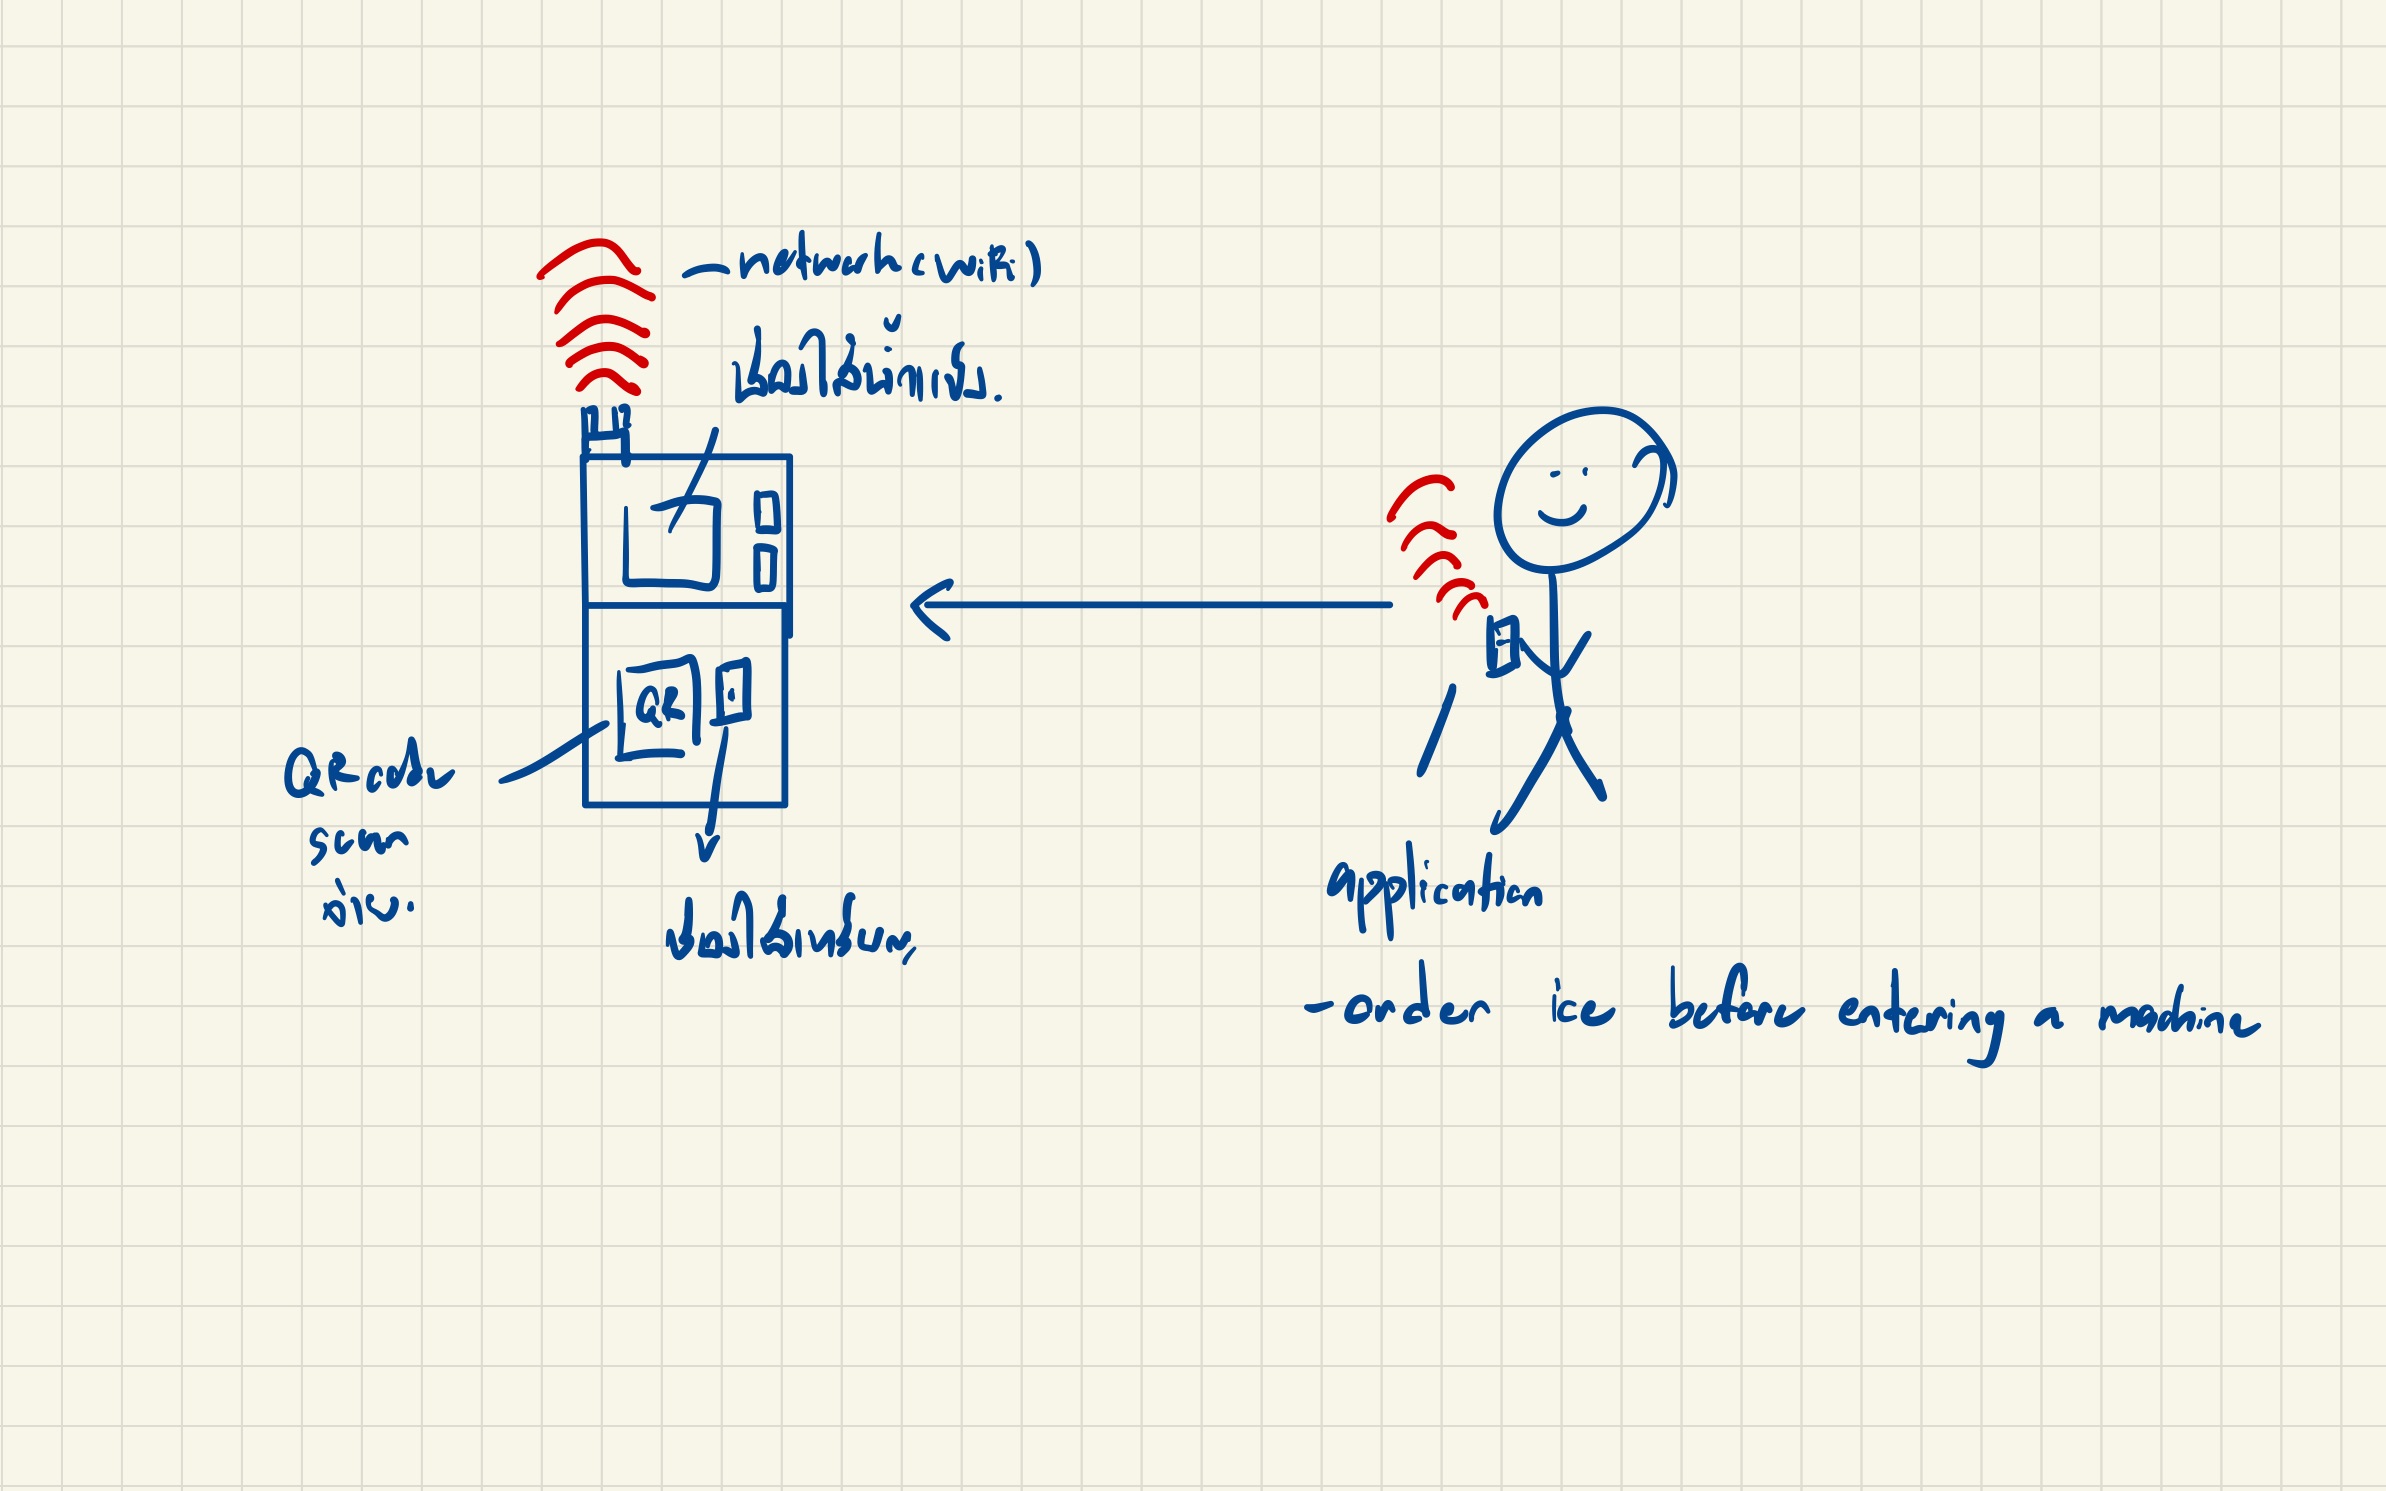 - network (wifi)
ช่องใส่น้ำแข็ง.
QR
QR code
scan
จ่าย.
ช่องใส่เหรียญ
application
- order ice before entering a machine